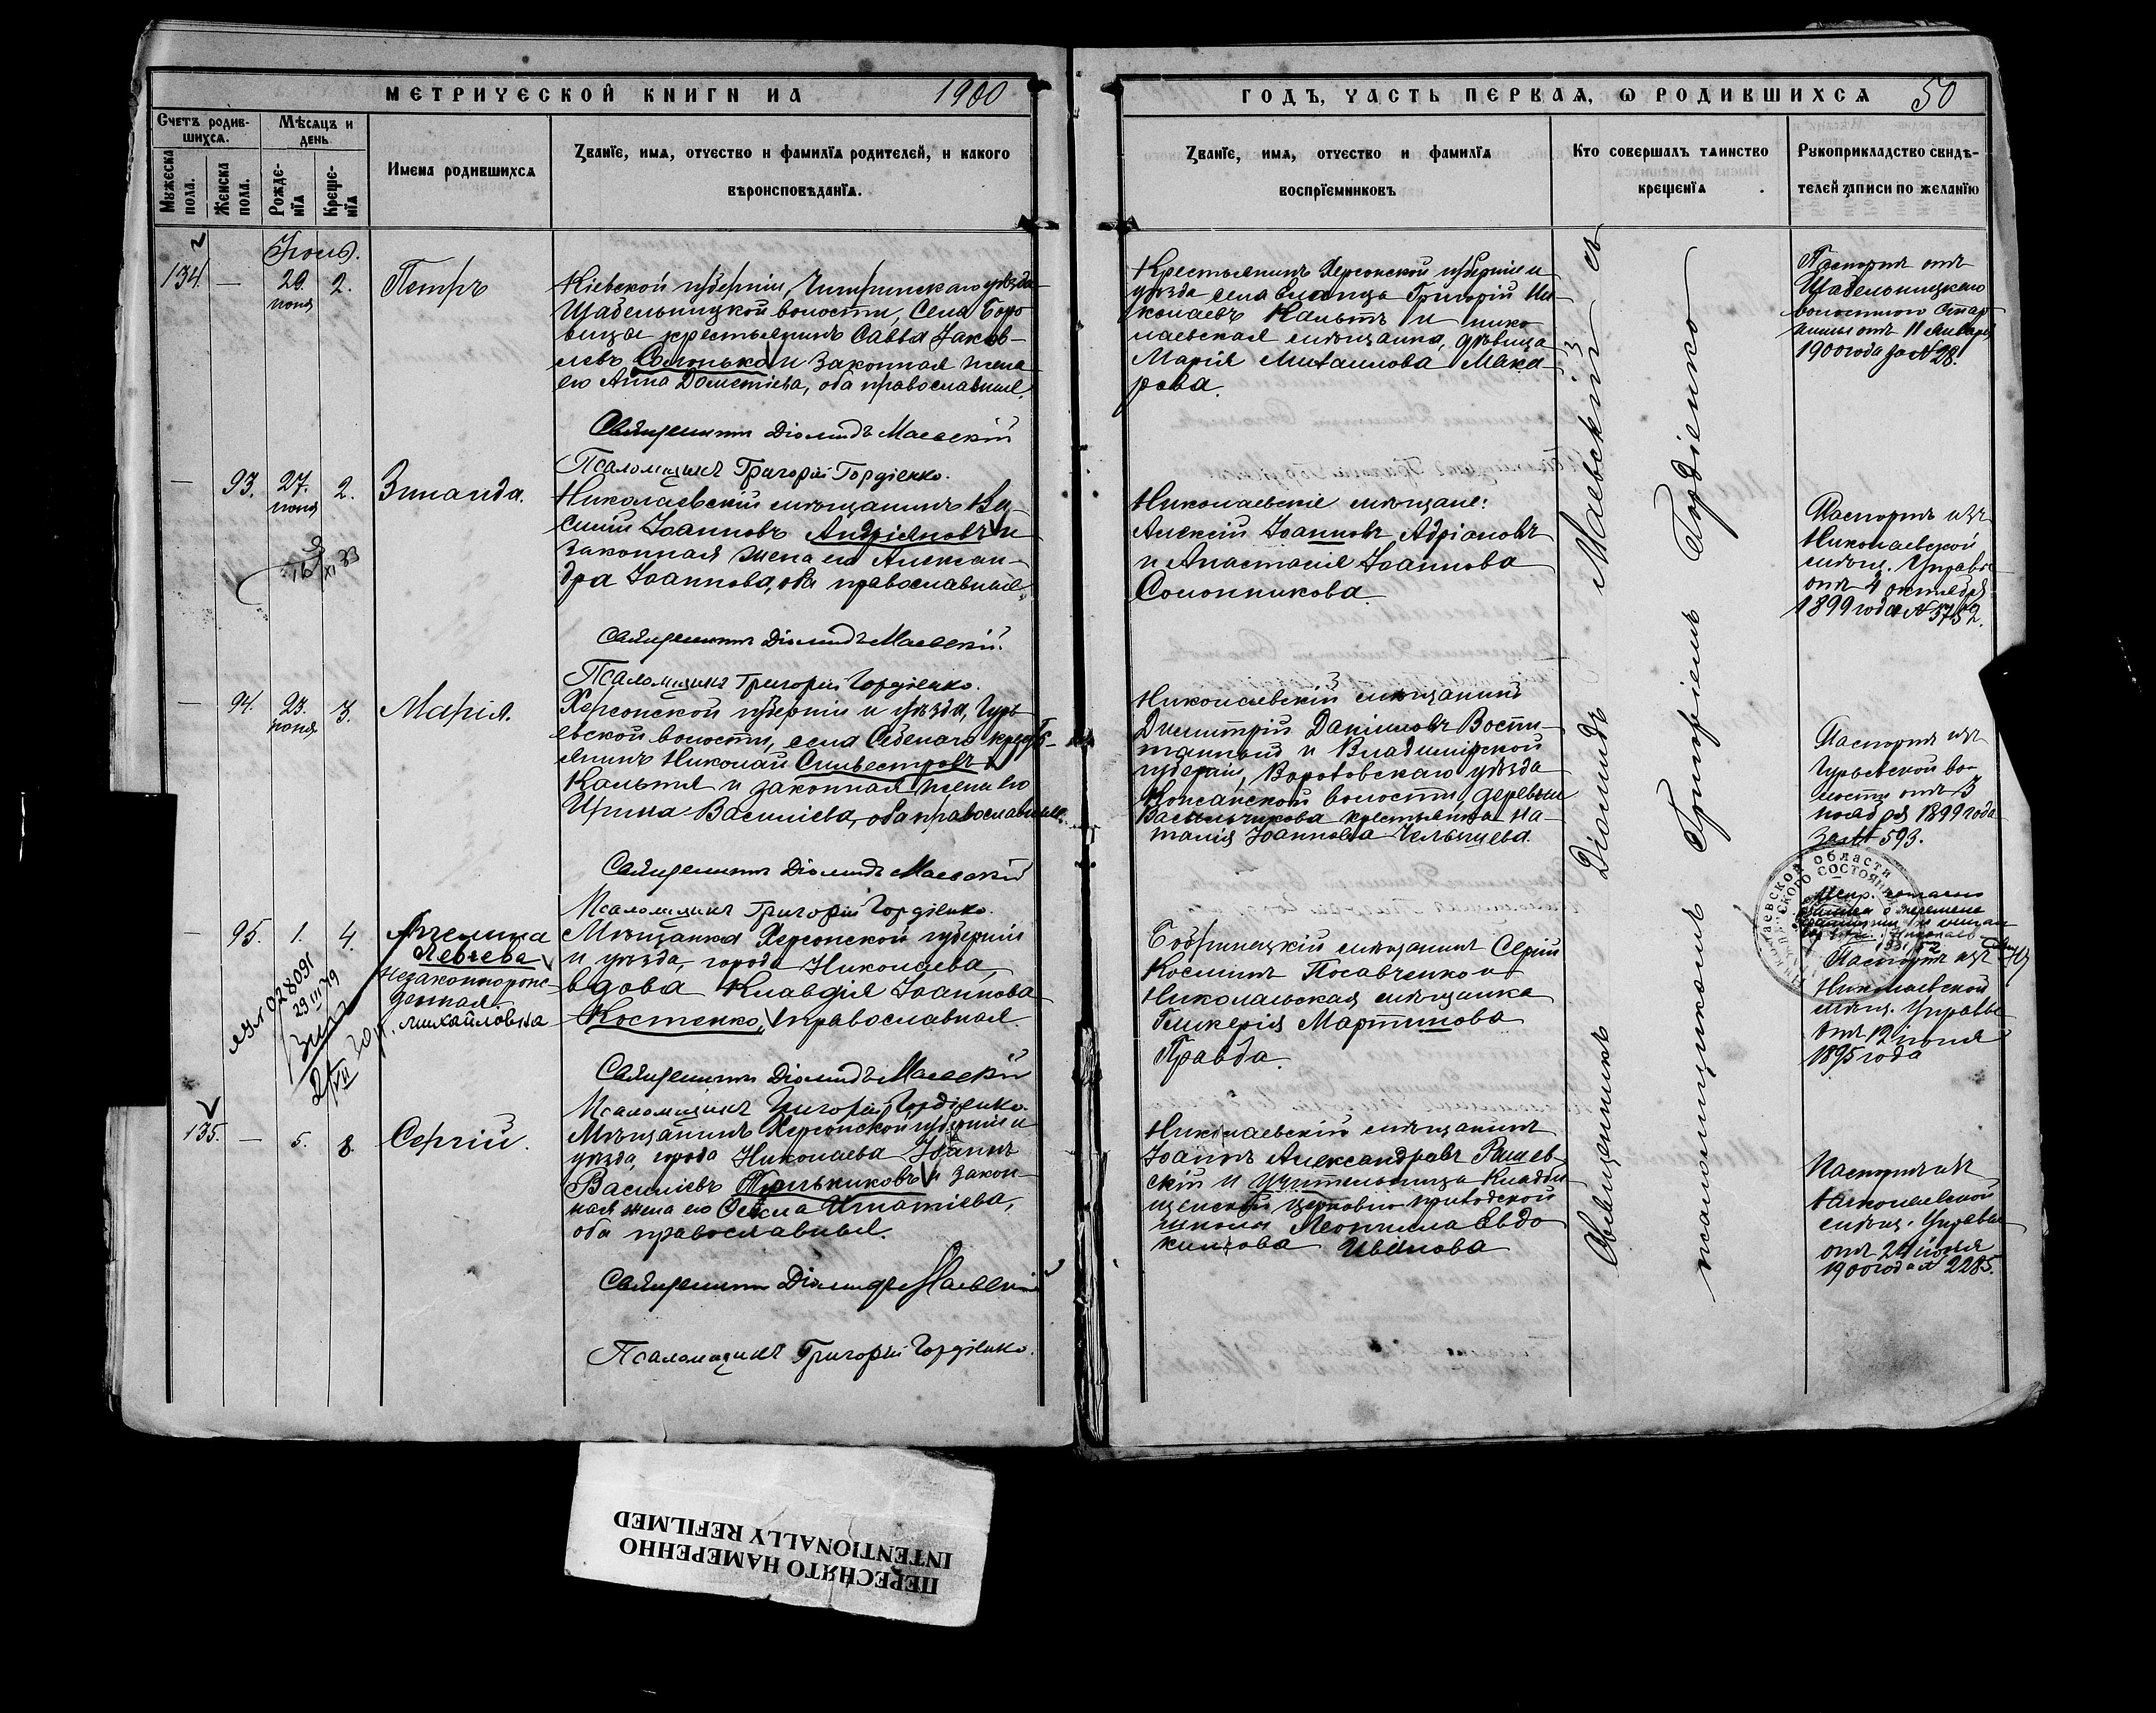 МЕТРИЧЕСКОЙ КНИГИ НА 1900
Счетъ родившихся.
Мужеска пола.
Женска пола.
Мѣсяцъ и день.
Рожденія
Крещенія
Имена родившихся
Званіе, имя, отчество и фамилія родителей, и какого
вѣроисповѣданія.
134.
29. іюня
2.
Петръ
Кіевской губерніи, Чигиринскаго уѣзда
Шабельницкой волости, села Боро
вицы крестьянинъ Савва Іаков-
левъ и законная жена
его Анна Дометіева, оба православные.
Священникъ Діомидъ Маевскій
Псаломщикъ Григорій Гордіенко.
93.
27. іюня
2.
Зинаида.
Николаевскій мѣщанинъ
Іоанновъ Андріяновъ и
законная жена его Алексан-
дра Іоаннова, оба православные.
Священникъ Діомидъ Маевскій.
Псаломщикъ Григорій Гордіенко.
94.
23. іюня
3.
Марія.
Херсонской губерніи и уѣзда, Гурь
евской волости, села кресть-
янинъ Николай Сильвестровъ
и законная жена его
Ирина Василіева, оба православные.
Священникъ Діомидъ Маевскій
Псаломщикъ Григорій Гордіенко.
95.
1.
4.
Ангелина
незаконнорож-
денная.
Михайловна
028091
29 III 49
Мѣщанка Херсонской губерніи
и уѣзда, города Николаева,
вдова Клавдія Іоаннова
Костенко, православная.
Священникъ Діомидъ Маевскій
Псаломщикъ Григорій Гордіенко.
135.
5.
8.
Сергій.
Мѣщанинъ Херсонской губерніи и
уѣзда, города Николаева Іоаннъ
Василіевъ и закон-
ная жена его Игнатіева,
оба православные.
Священникъ Діомидъ Маевскій
Псаломщикъ Григорій Гордіенко.
ГОДЪ, ЧАСТЬ ПЕРВАЯ, О РОДИВШИХСЯ 50
Званіе, имя, отчество и фамилія
воспріемниковъ
Кто совершалъ таинство
крещенія
Рукоприкладство свидѣ-
телей записи по желанію
Крестьянинъ Херсонской губерніи и
уѣзда села Еланца Григорій Ни-
колаевъ и нико
лаевская мѣщанка, дѣвица
Марія Михаилова Мака-
рова.
Паспортъ отъ
Шабельницкаго
волостного стар
шины отъ 11 января
1900 года за № 28.
Николаевскіе мѣщане:
Алексій Іоанновъ Адріановъ
и Анастасія Іоаннова
Солонникова.
Паспортъ изъ
Николаевской
мѣщ. Управы
отъ 4 октября
1899 года № 3752.
Николаевскій мѣщанинъ
Димитрій Даніиловъ Воспи-
танный и Владимірской
губерніи, уѣзда
волости, деревни
крестьянка На-
талія Іоаннова
Паспортъ изъ
Гурьевской во-
лости отъ 3
ноября 1899 года
за № 593.
Бобринецкій мѣщанинъ Сергій
Косминъ Посавченко и
Николаевская мѣщанка
Гликерія Мартинова
Правда.
Паспортъ изъ
Николаевской
мѣщ. Управы
отъ 12 іюня
1895 года
Николаевскій мѣщанинъ
Іоаннъ Александровъ
и учительница Кладби
щенской церковно-приходской
школы Леонилла Евдо
кимова Иванова
Паспортъ изъ
Николаевской
мѣщ. Управы
отъ 24 іюня
1900 года № 2285.
Священникъ Діомидъ Маевскій съ
псаломщикомъ Григоріемъ Гордіенко
ПЕРЕСНЯТО НАМЕРЕННО
INTENTIONALLY REFILMED